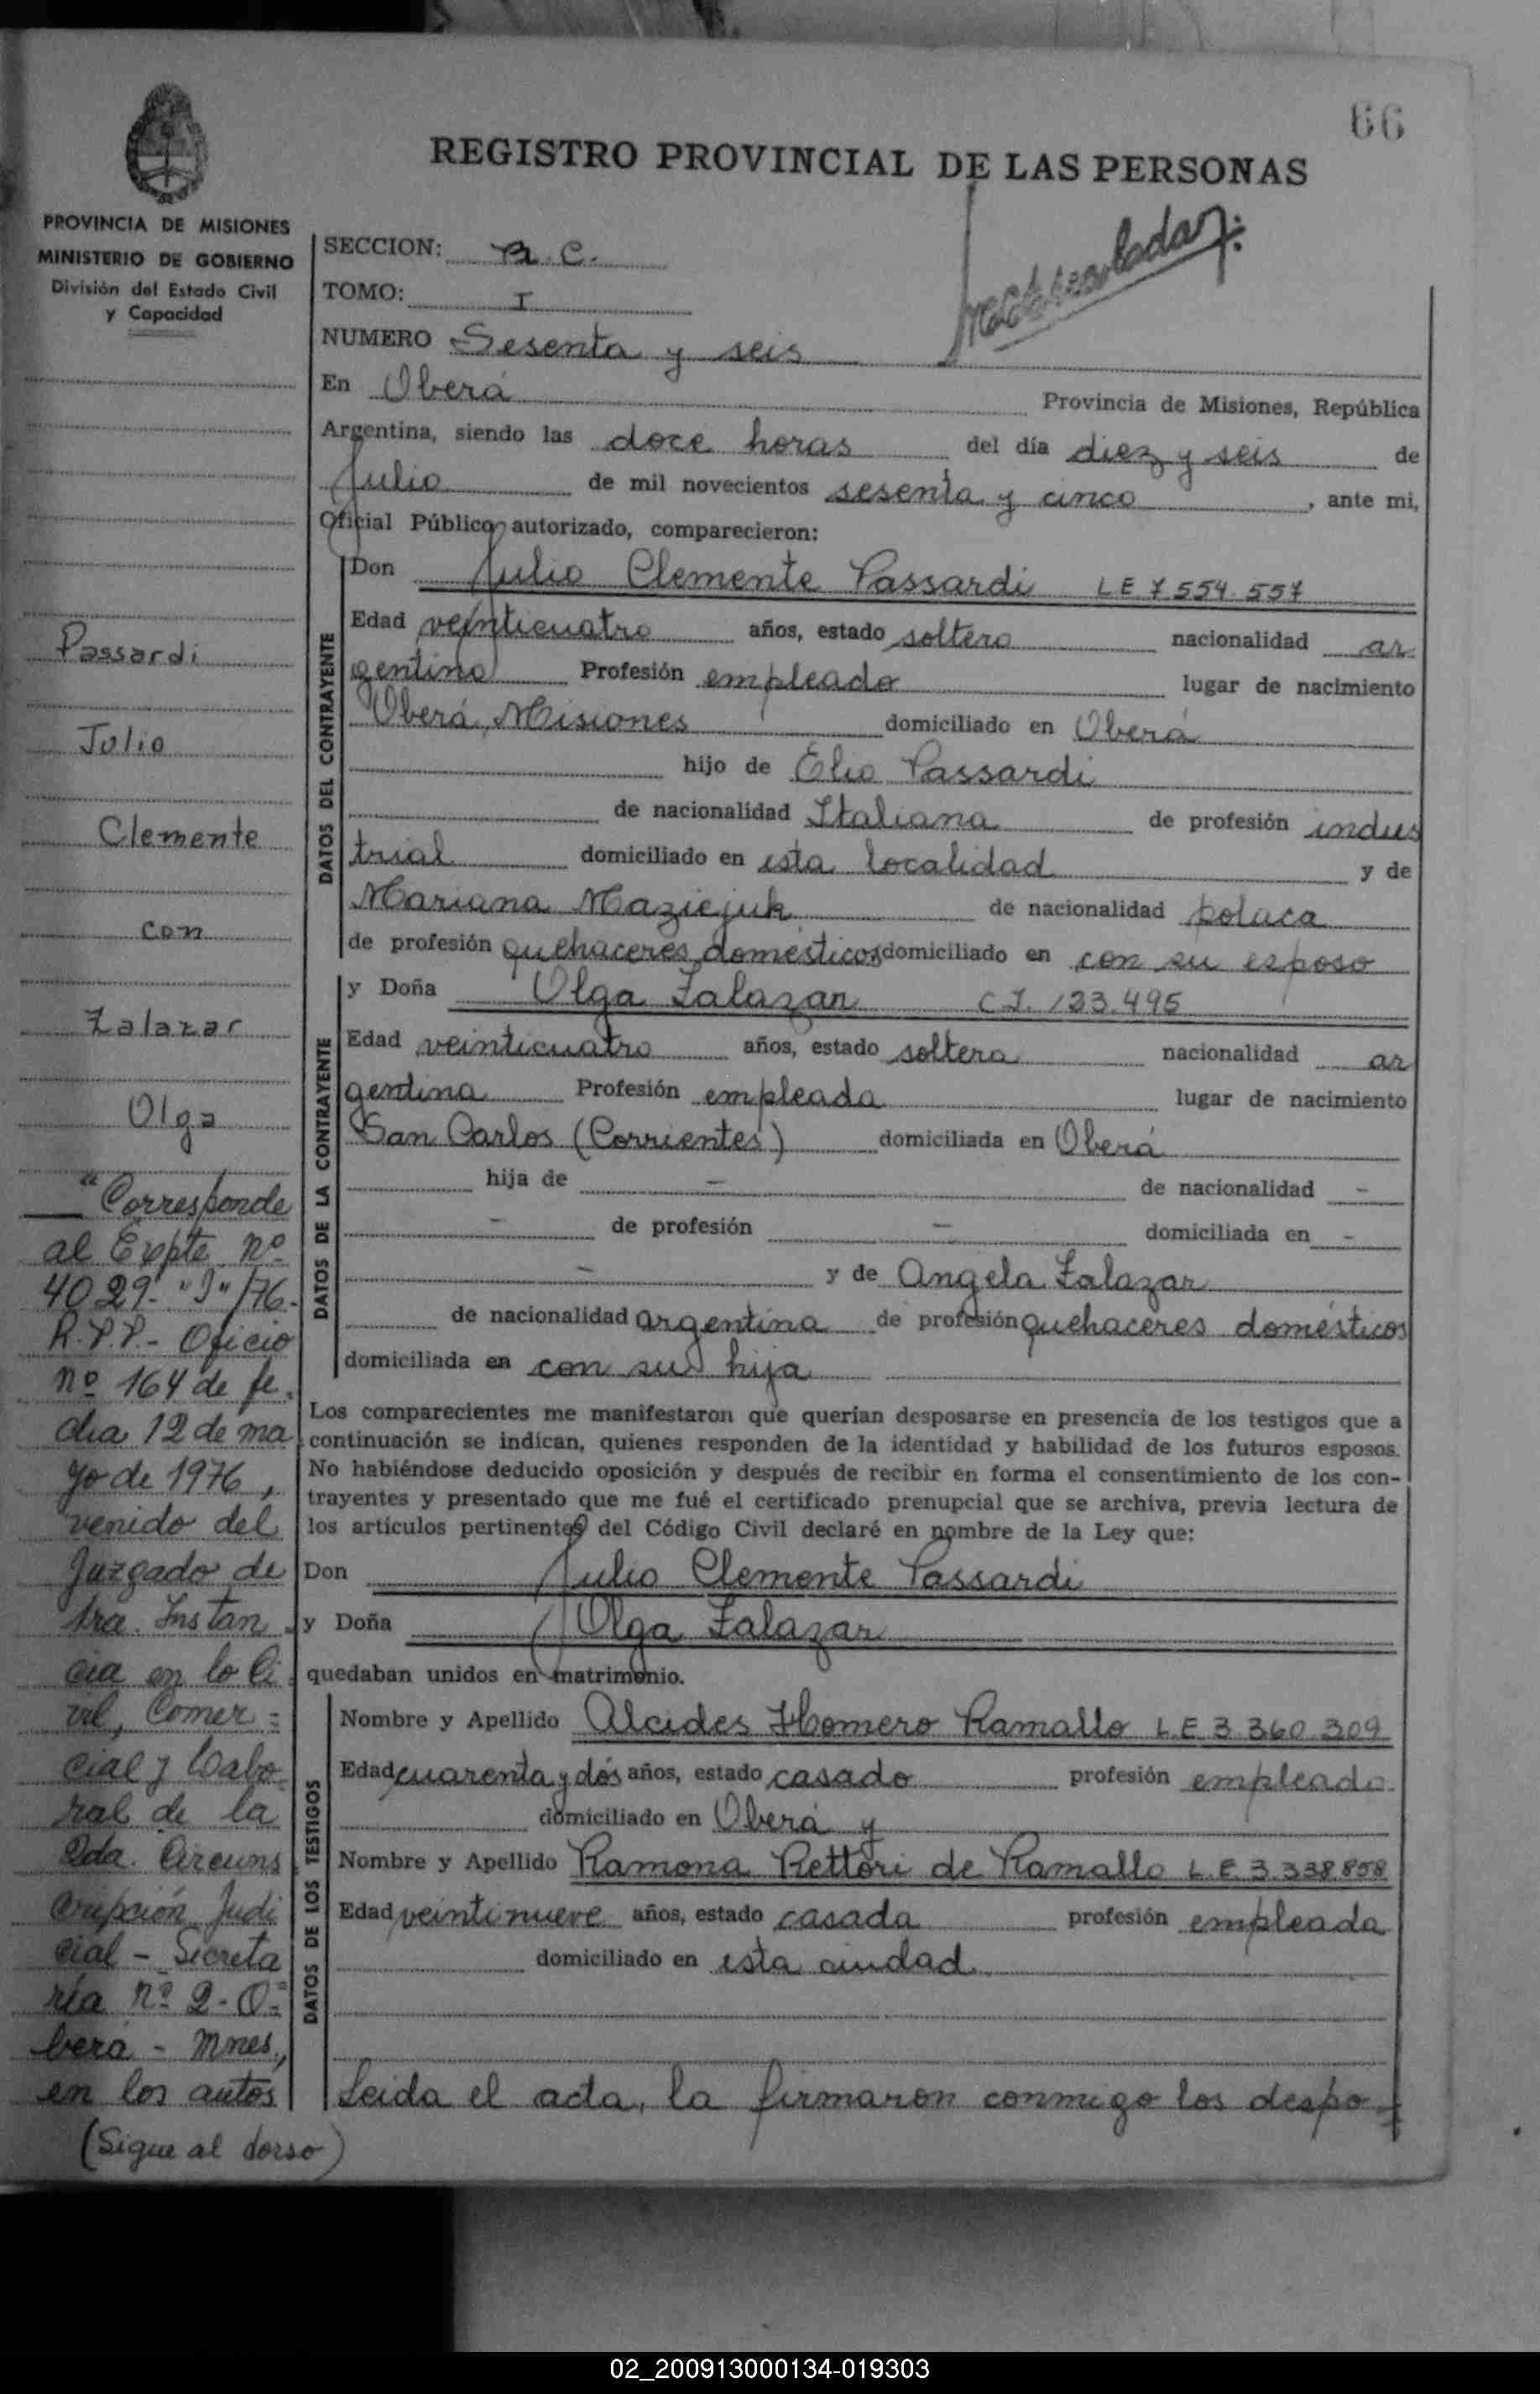 66
REGISTRO PROVINCIAL DE LAS PERSONAS
PROVINCIA DE MISIONES
MINISTERIO DE GOBIERNO
División del Estado Civil
y Capacidad
Passardi
Julio
Clemente
con
Zalazar
Olga
"Corresponde
al Expte. nº
4029-"J"/76.-
R.P.P.- Oficio
nº 164 de fe
cha 12 de ma
yo de 1976,
venido del
Juzgado de
1ra. Instan
cia en lo Ci
vil, Comer=
cial y Labo
ral de la
2da. Circuns
cripción Judi
cial - Secreta
ría nº 2 - O=
berá - Mnes.,
en los autos
(Sigue al dorso)
SECCION: C.
TOMO: I
NUMERO Sesenta y seis
En Oberá Provincia de Misiones, República
Argentina, siendo las doce horas del día diez y seis de
Julio de mil novecientos sesenta y cinco, ante mi,
Oficial Público autorizado, comparecieron:
DATOS DEL CONTRAYENTE
Don Julio Clemente Passardi LE 7.554.557
Edad veinticuatro años, estado soltero nacionalidad ar
gentino Profesión empleado lugar de nacimiento
Oberá, Misiones domiciliado en Oberá
hijo de Elio Passardi
de nacionalidad Italiana de profesión indus
trial domiciliado en esta localidad y de
Mariana Maziejuk de nacionalidad polaca
de profesión quehaceres domésticos domiciliado en con su esposo
DATOS DE LA CONTRAYENTE
y Doña Olga Zalazar C.I. 123.495
Edad veinticuatro años, estado soltera nacionalidad ar
gentina Profesión empleada lugar de nacimiento
San Carlos (Corrientes) domiciliada en Oberá
hija de - de nacionalidad -
- de profesión - domiciliada en -
- y de Angela Zalazar
de nacionalidad argentina de profesión quehaceres domésticos
domiciliada en con su hija
Los comparecientes me manifestaron que querían desposarse en presencia de los testigos que a
continuación se indican, quienes responden de la identidad y habilidad de los futuros esposos.
No habiéndose deducido oposición y después de recibir en forma el consentimiento de los con-
trayentes y presentado que me fué el certificado prenupcial que se archiva, previa lectura de
los artículos pertinentes del Código Civil declaré en nombre de la Ley que:
Don Julio Clemente Passardi
y Doña Olga Zalazar
quedaban unidos en matrimonio.
DATOS DE LOS TESTIGOS
Nombre y Apellido Alcides Homero Ramallo L.E 3.360.309
Edad cuarenta y dós años, estado casado profesión empleado
domiciliado en Oberá y
Nombre y Apellido Ramona Rettori de Ramallo L.E. 3.338.858
Edad veintinueve años, estado casada profesión empleada
domiciliado en esta ciudad
Leida el acta, la firmaron conmigo los despo
02_200913000134-019303